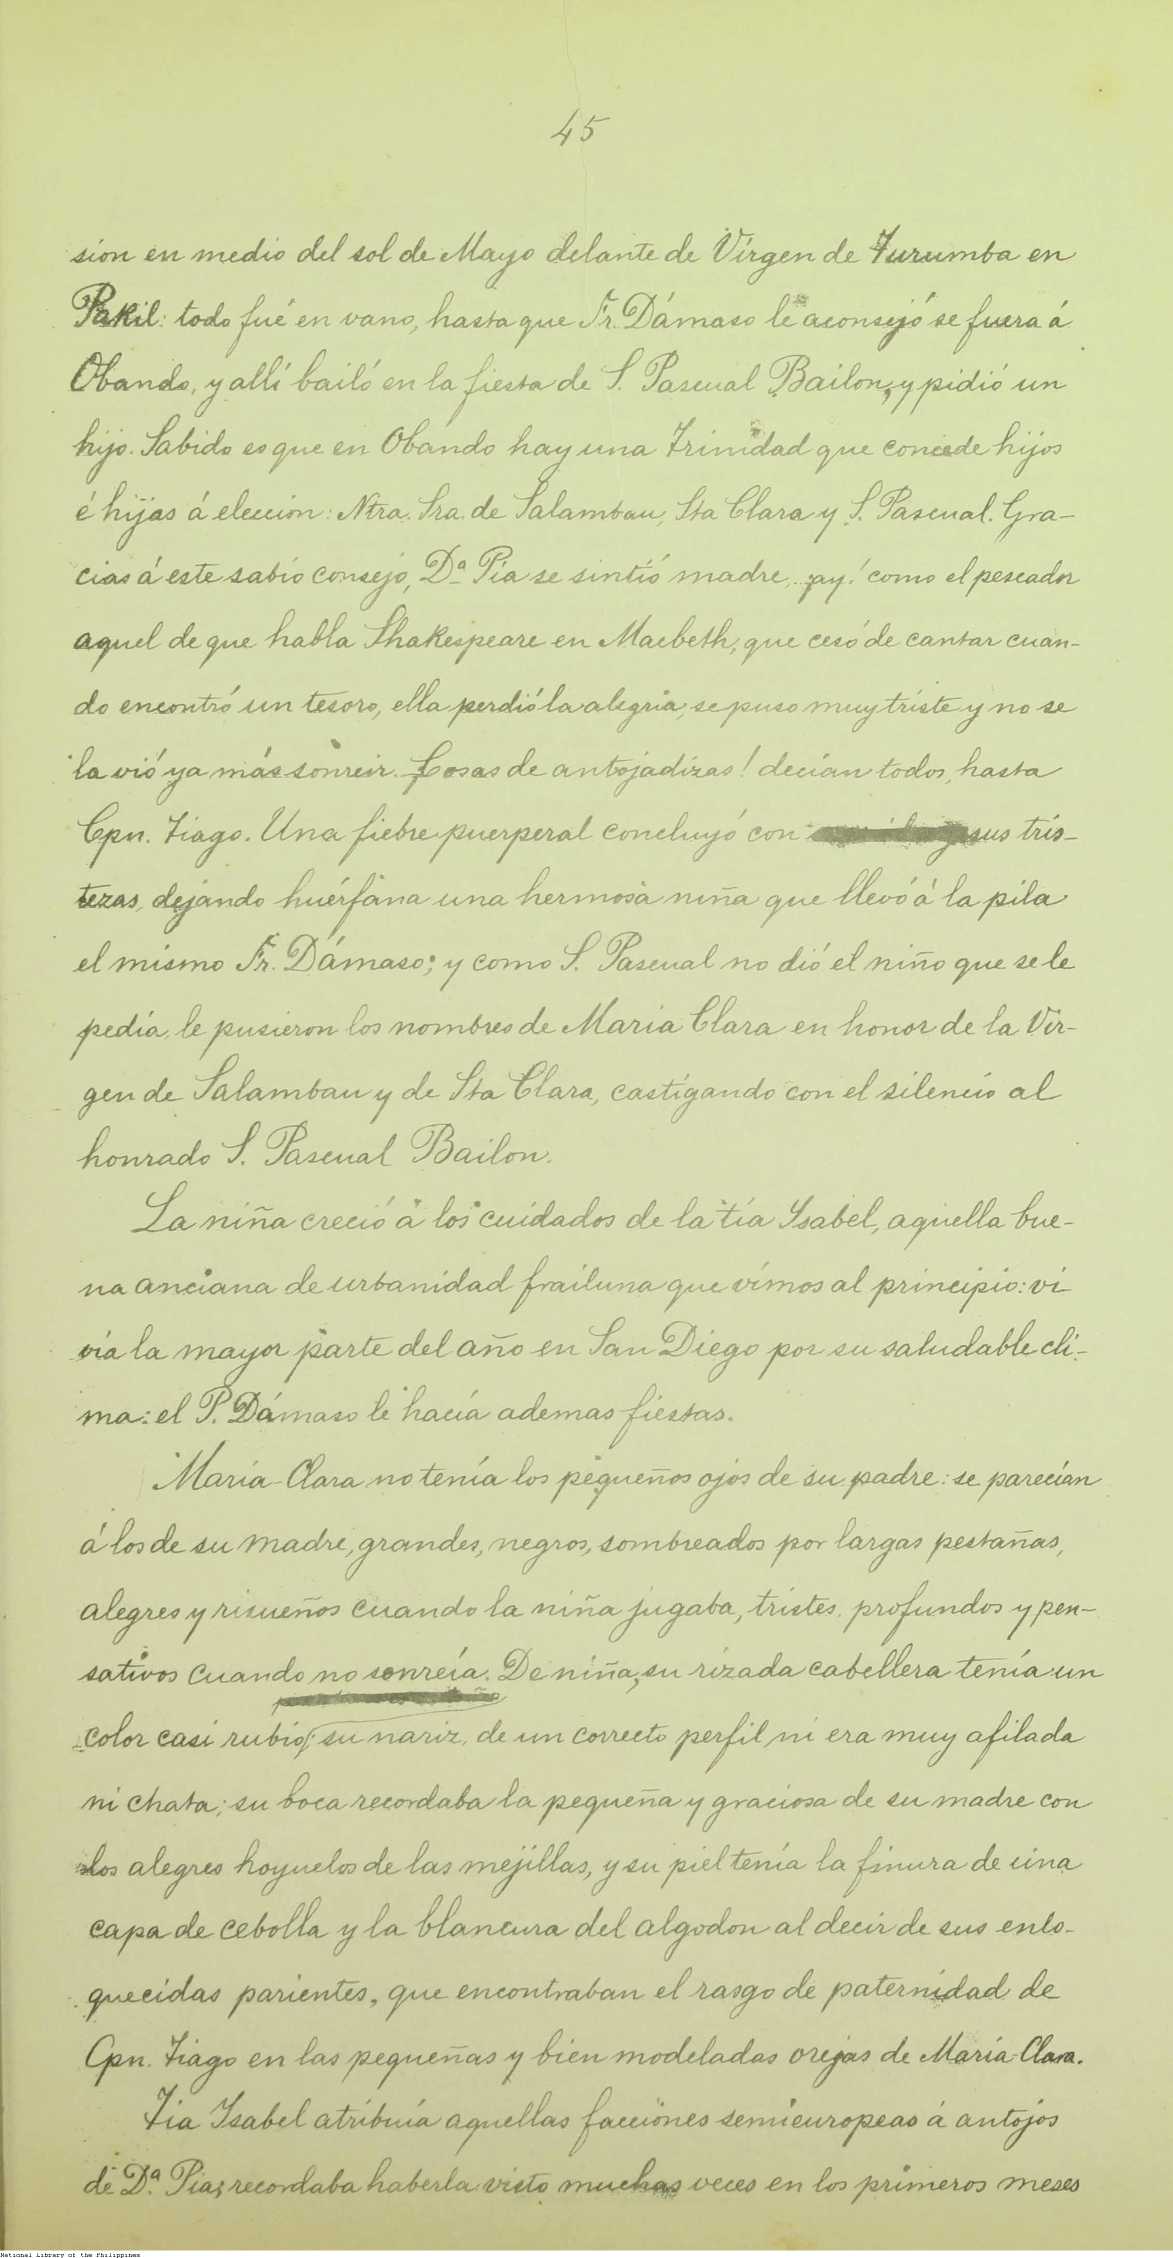 45
sion en medio del sol de Mayo delante de Vírgen de Turumba en
Pakil: todo fué en vano, hasta que Fr. Dámaso le aconsejó se fuera á
Obando, y allí bailó en la fiesta de S. Pascual Bailon, y pidió un
hijo. Sabido es que en Obando hay una Trinidad que concede hijos
é hijas á eleccion: Ntra. Sra. de Salambau, Sta Clara y S. Pascual. Gra-
cias á este sabio consejo, Dª Pía se sintió madre, ¡ay! como el pescador
aquel de que habla Shakespeare en Macbeth, que cesó de cantar cuan-
do encontró un tesoro, ella perdió la alegría, se puso muy triste y no se
la vió ya más sonreir. ¡Cosas de antojadizas! decían todos, hasta
Cpn. Tiago. Una fiebre puerperal concluyó con sus tris-
tezas, dejando huérfana una hermosa niña que llevó á la pila
el mismo Fr. Dámaso; y como S. Pascual no dió el niño que se le
pedía, le pusieron los nombres de Maria Clara en honor de la Vir-
gen de Salambau y de Sta Clara, castigando con el silencio al
honrado S. Pascual Bailon.
La niña creció á los cuidados de la tía Ysabel, aquella bue-
na anciana de urbanidad frailuna que vimos al principio: vi
vía la mayor parte del año en San Diego por su saludable cli-
ma: el P. Dámaso le hacía ademas fiestas.
María-Clara no tenía los pequeños ojos de su padre: se parecían
á los de su madre, grandes, negros, sombreados por largas pestañas,
alegres y risueños cuando la niña jugaba, tristes, profundos y pen-
sativos cuando no sonreía. De niña, su rizada cabellera tenía un
color casi rubio; su nariz, de un correcto perfil, ni era muy afilada
ni chata; su boca recordaba la pequeña y graciosa de su madre con
los alegres hoyuelos de las mejillas, y su piel tenía la finura de una
capa de cebolla y la blancura del algodon al decir de sus enlo-
quecidas parientes, que encontraban el rasgo de paternidad de
Cpn. Tiago en las pequeñas y bien modeladas orejas de María-Clara.
Tia Ysabel atribuía aquellas facciones semieuropeas á antojos
de Dª. Pia; recordaba haberla visto muchas veces en los primeros meses
National Library of the Philippines